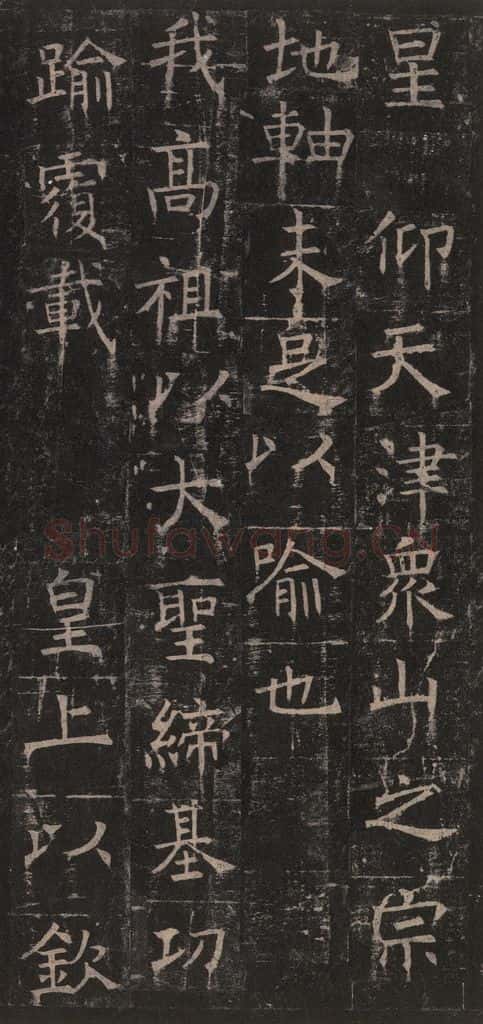 星 仰天津衆山之宗
地軸未足以喻也
我高祖以大聖締基功
踰覆載 皇上以欽
Shufawang.cn